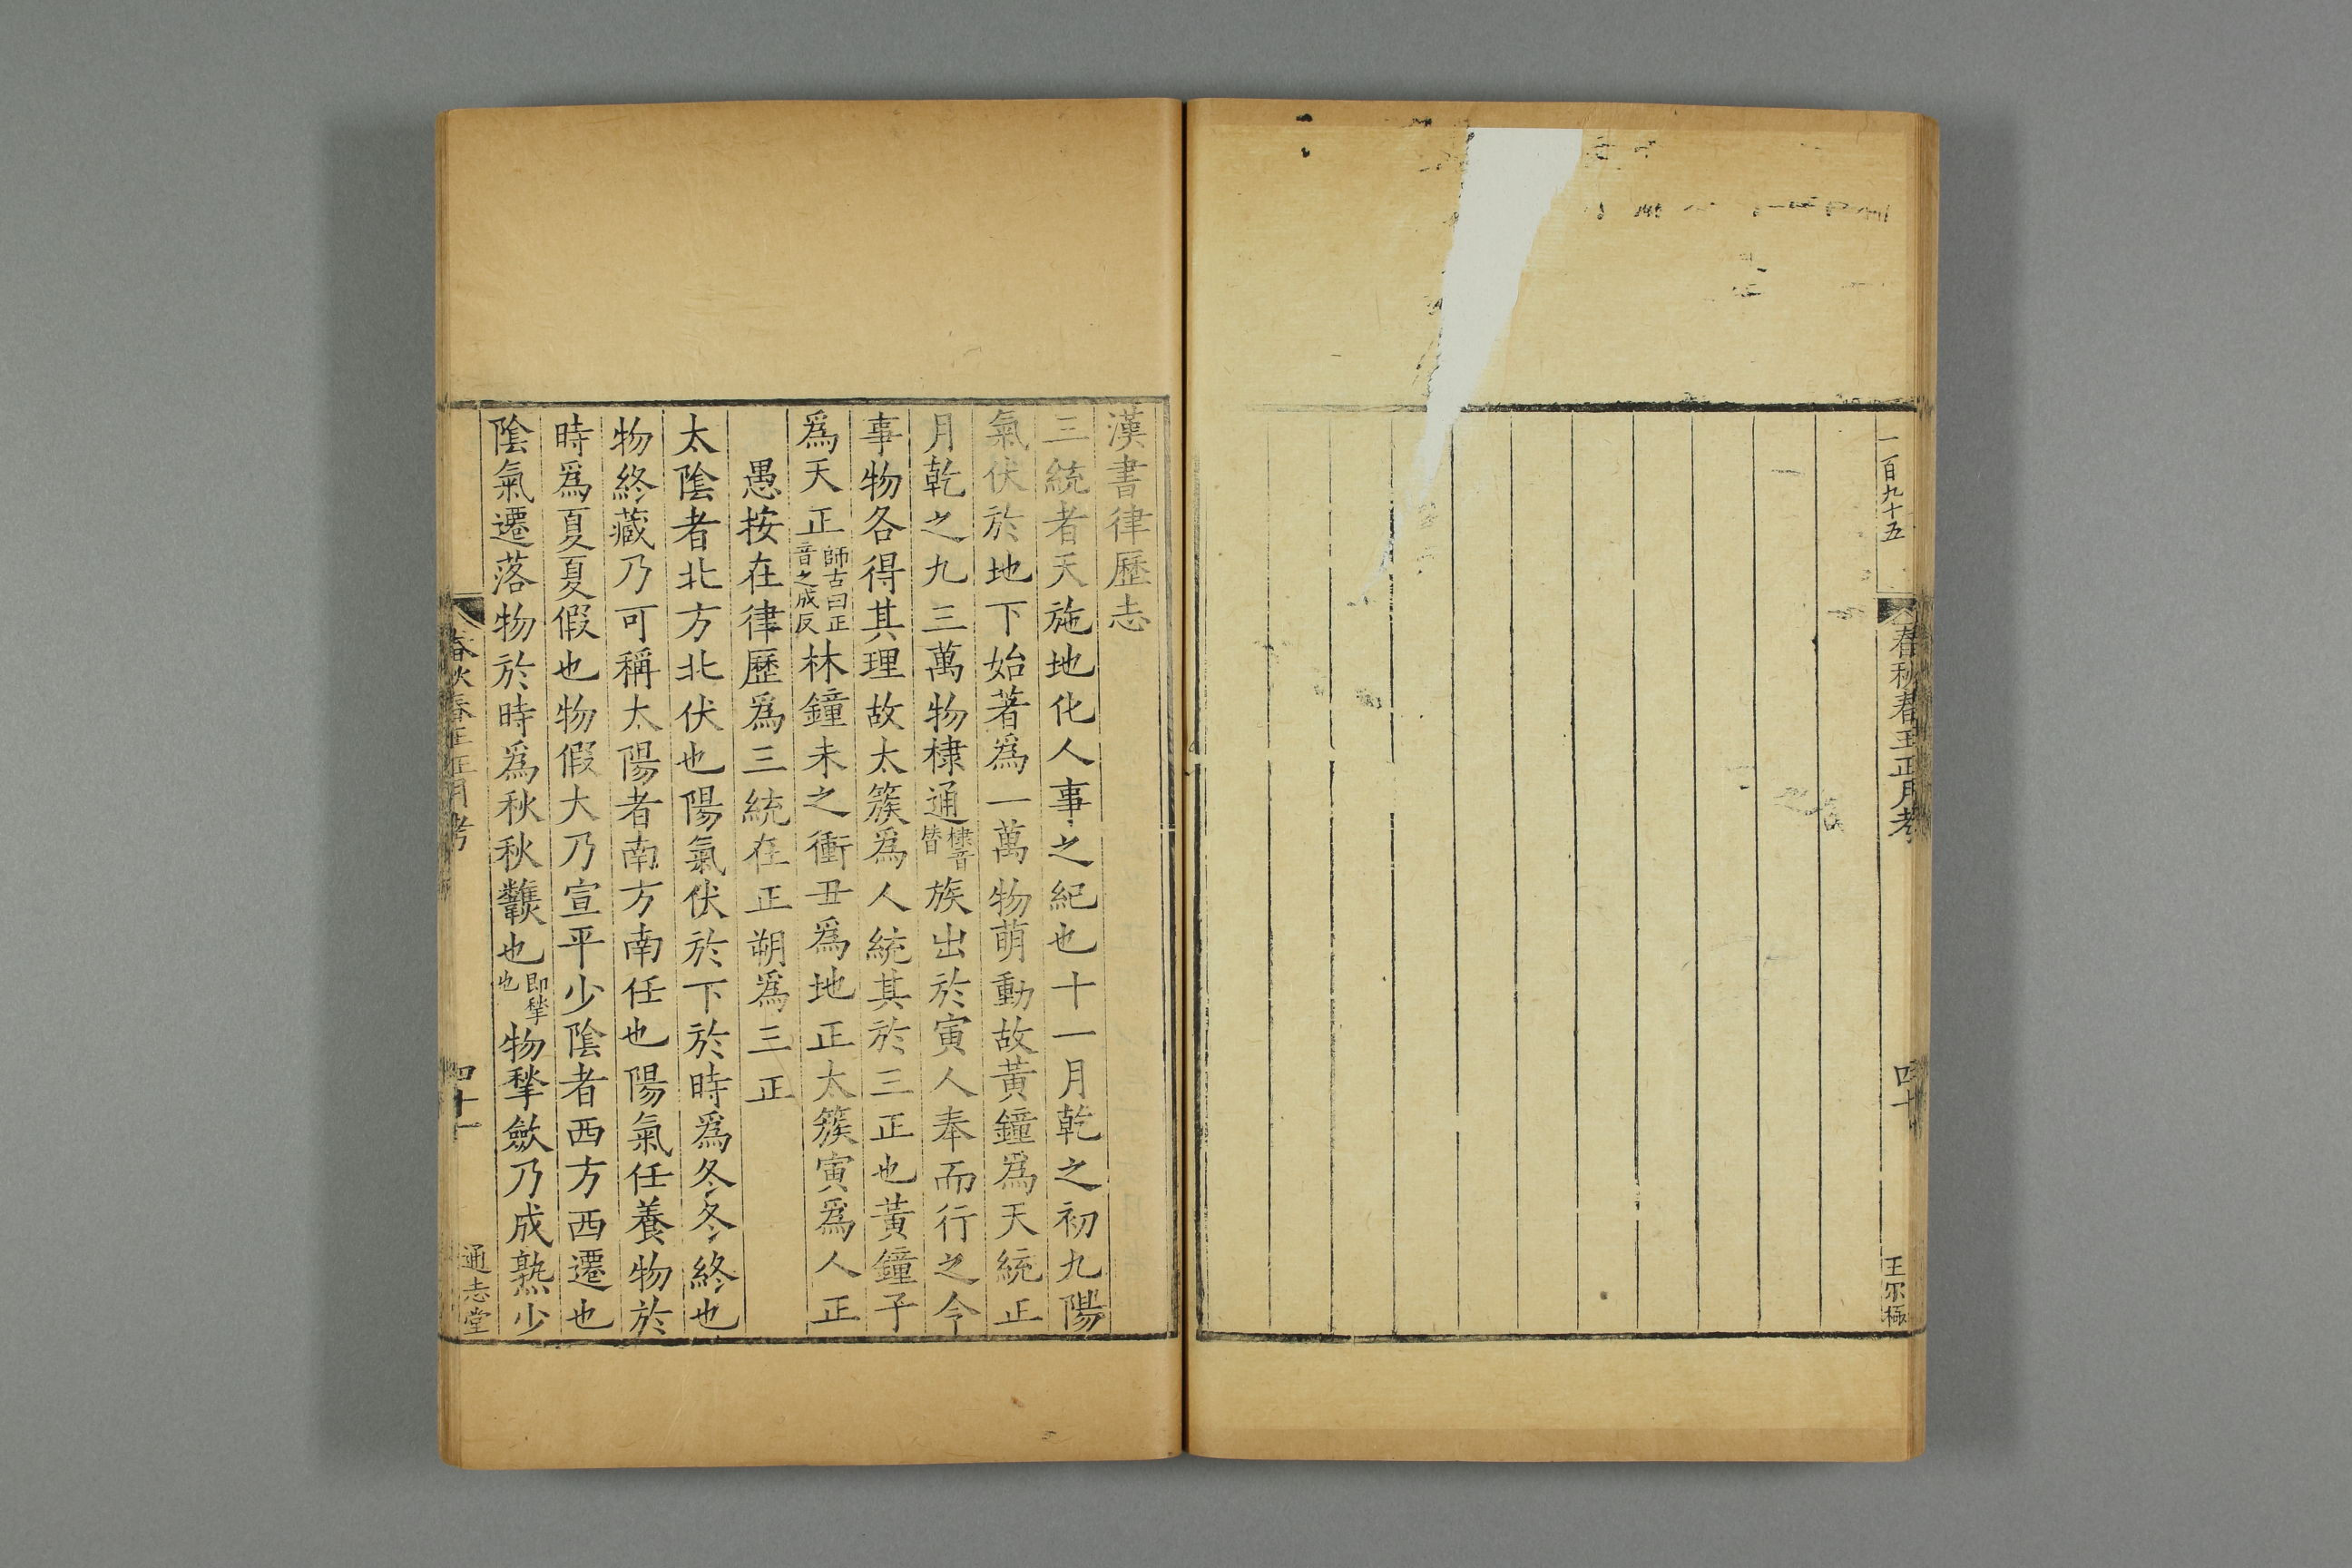 一百九十五
春秋春王正月考
四十
王尔極
漢書律歷志
三統者天施地化人事之紀也十一月乾之初九陽
氣伏於地下始著爲一萬物萌動故黃鐘爲天統正
月乾之九三萬物棣通棣音替族出於寅人奉而行之令
事物各得其理故太簇爲人統其於三正也黃鐘子
爲天正師古曰正音之成反林鐘未之衝丑爲地正太簇寅爲人正
愚按在律歷爲三統在正朔爲三正
太陰者北方北伏也陽氣伏於下於時爲冬冬終也
物終藏乃可稱太陽者南方南任也陽氣任養物於
時爲夏夏假也物假大乃宣平少陰者西方西遷也
陰氣遷落物於時爲秋秋𪛁也即揫也物揫斂乃成熟少
春秋春王正月考
四十一
通志堂